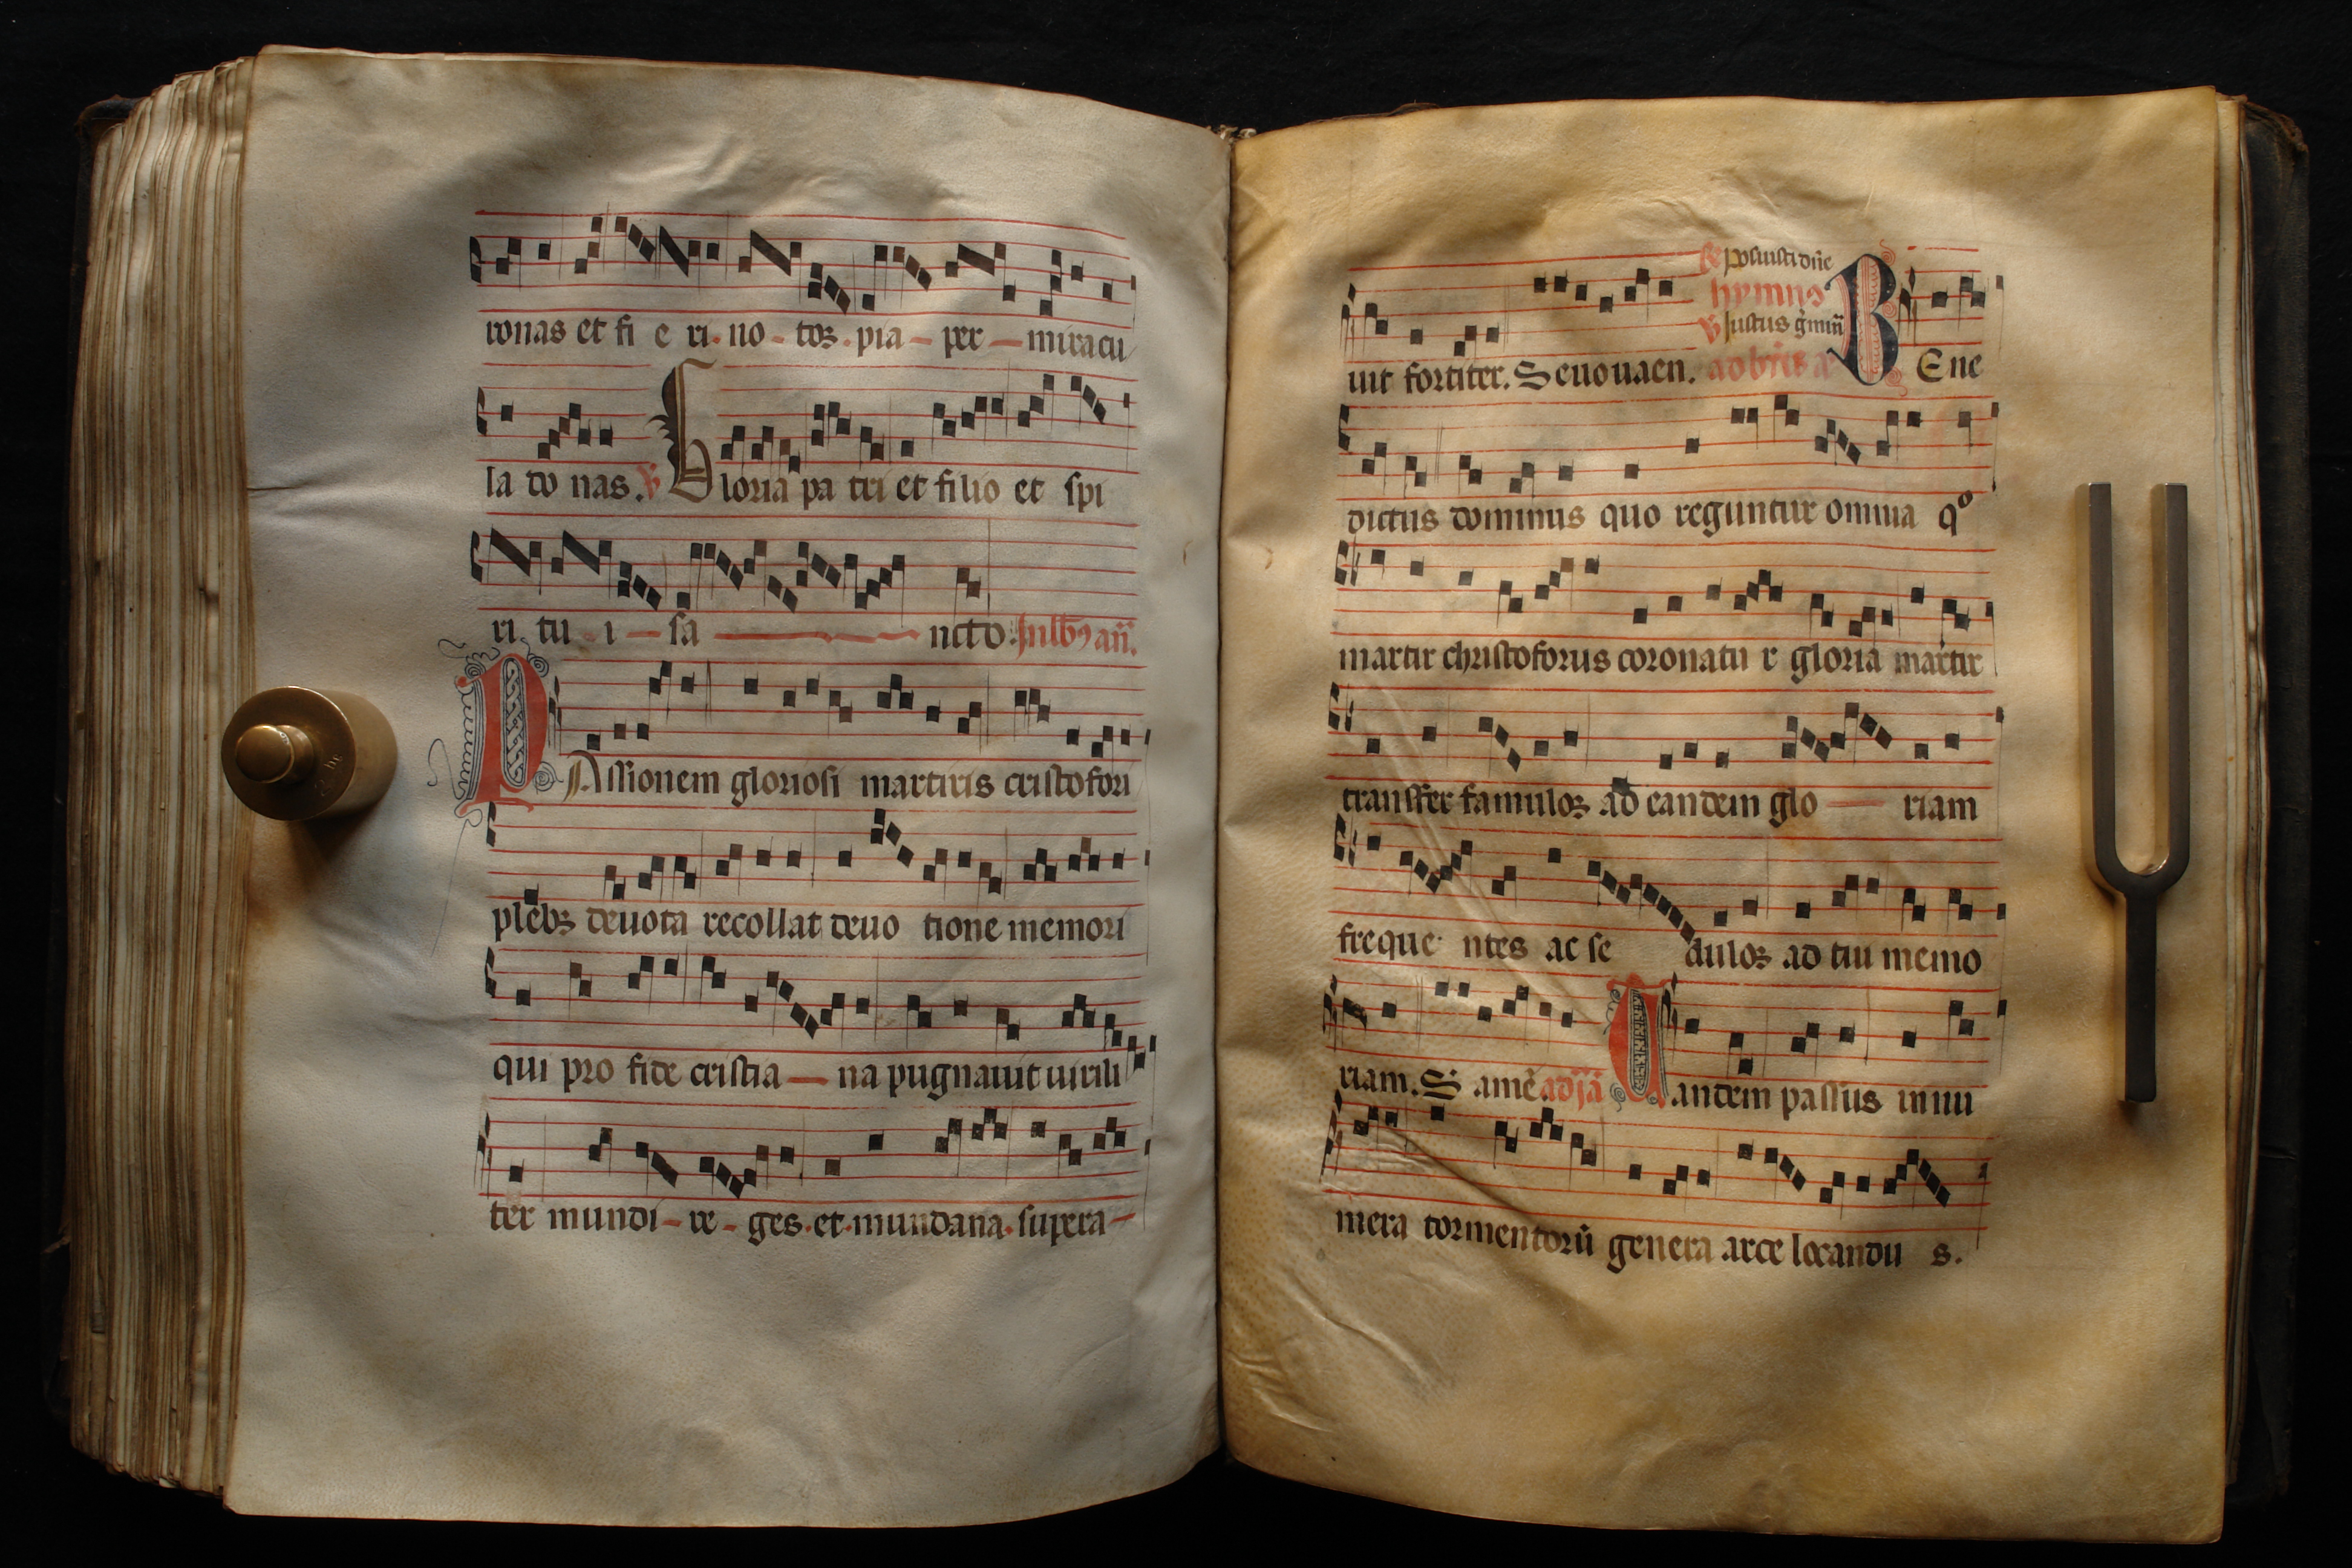 ronas et fi e ri. no - toꝝ. pia - per - miracu
la do nas. ℣ Gloria pa tri et filio et spi
ri. tu - i - sa - ncto. In lb'ꝯ añ.
PAssionem gloriosi martiris cristofori
plebꝫ deuota recollat deuo tione memori
qui pro fide cristia - na pugnauit uirili
ter mundi - re - ges. et. mundana. supera -
℟ posuisti dñe
hymnꝯ
℣ Justus g̃min
uit fortiter. Seuouaen. BEne
dictus dominus quo reguntur omnia qo
martir christoforus coronatu r gloria martir
transfer famuloꝝ ad eandem glo - riam
freque ntes ac se duloꝝ ad tiu memo
riam. S amē andem passus innu
mera tormentorū genera arce locandu s.